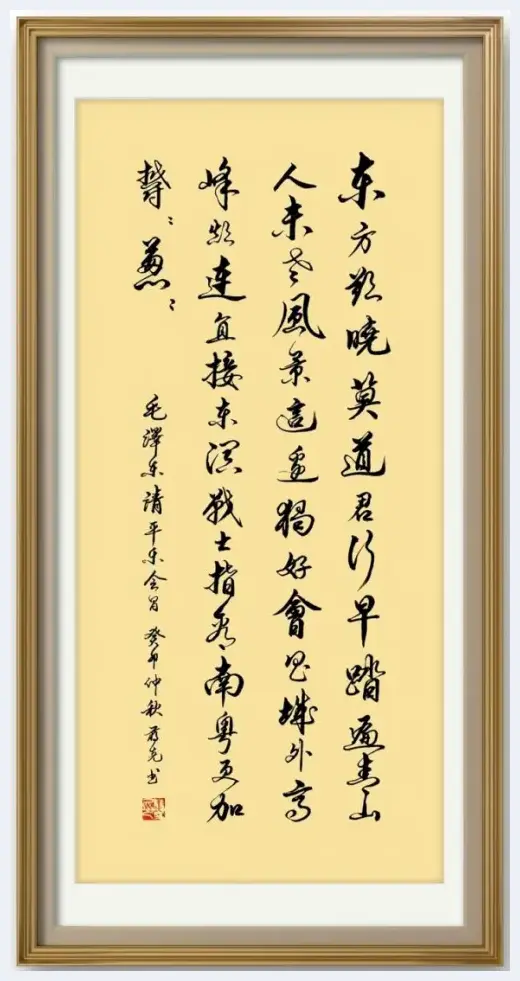 东方欲晓莫道君行早踏遍青山
人未老風景這邊獨好會昌城外高
峰颠連直接东溟战士指看南粤更加
鬱〻葱〻
毛澤东清平乐会昌 癸卯仲秋 书